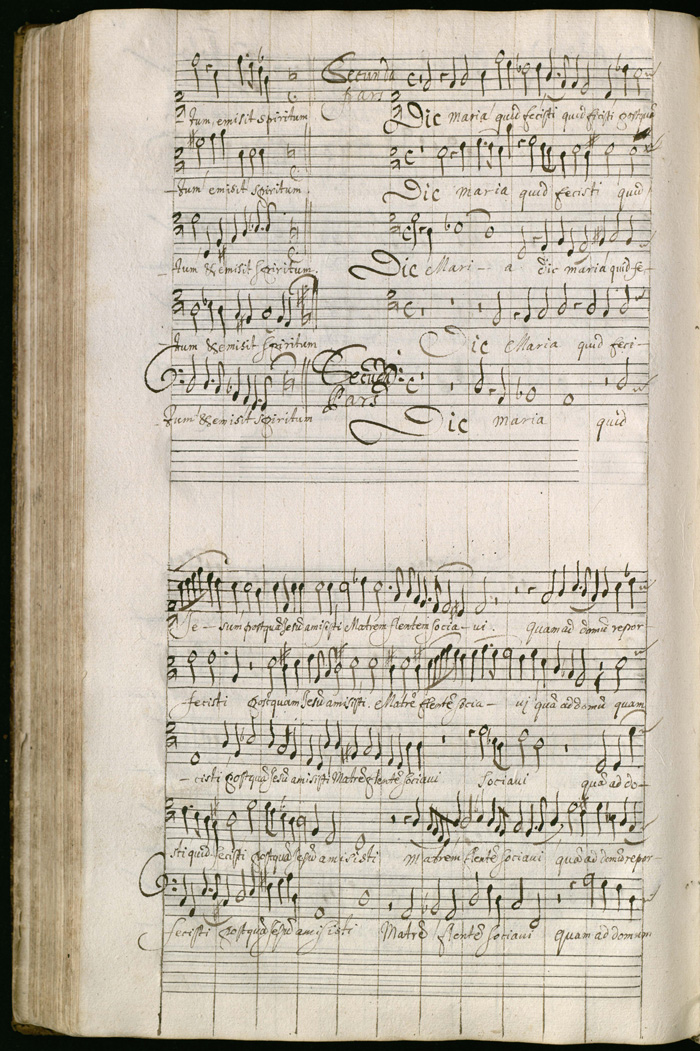 Secunda
Pars
tum, emisit spiritum Dic maria quid fecisti quid fecisti postquã
tum emisit spiritum. Dic maria quid fecisti quid
tum & emisit spiritum. Dic Mari - a dic maria quid fe-
tum & emisit spiritum Dic Maria quid feci-
Secunda
Pars
tum & emisit spiritum Dic maria quid
Je - sum postquã Jesũ amisisti Matrem flentem socia - vi. quam ad domũ repor-
fecisti postquam Jesũ amisisti. Matrẽ flentẽ socia - vi quã ad domũ quam
- cisti postquã Jesũ amisisti Matrẽ flentẽ sociavi sociavi quã ad do-
sti quid fecisti postquã Jesũ amisisti Matrem flentẽ sociavi quã ad domũ repor-
fecisti postquã Jesũ amisisti Matrẽ flentẽ sociavi quam ad domum